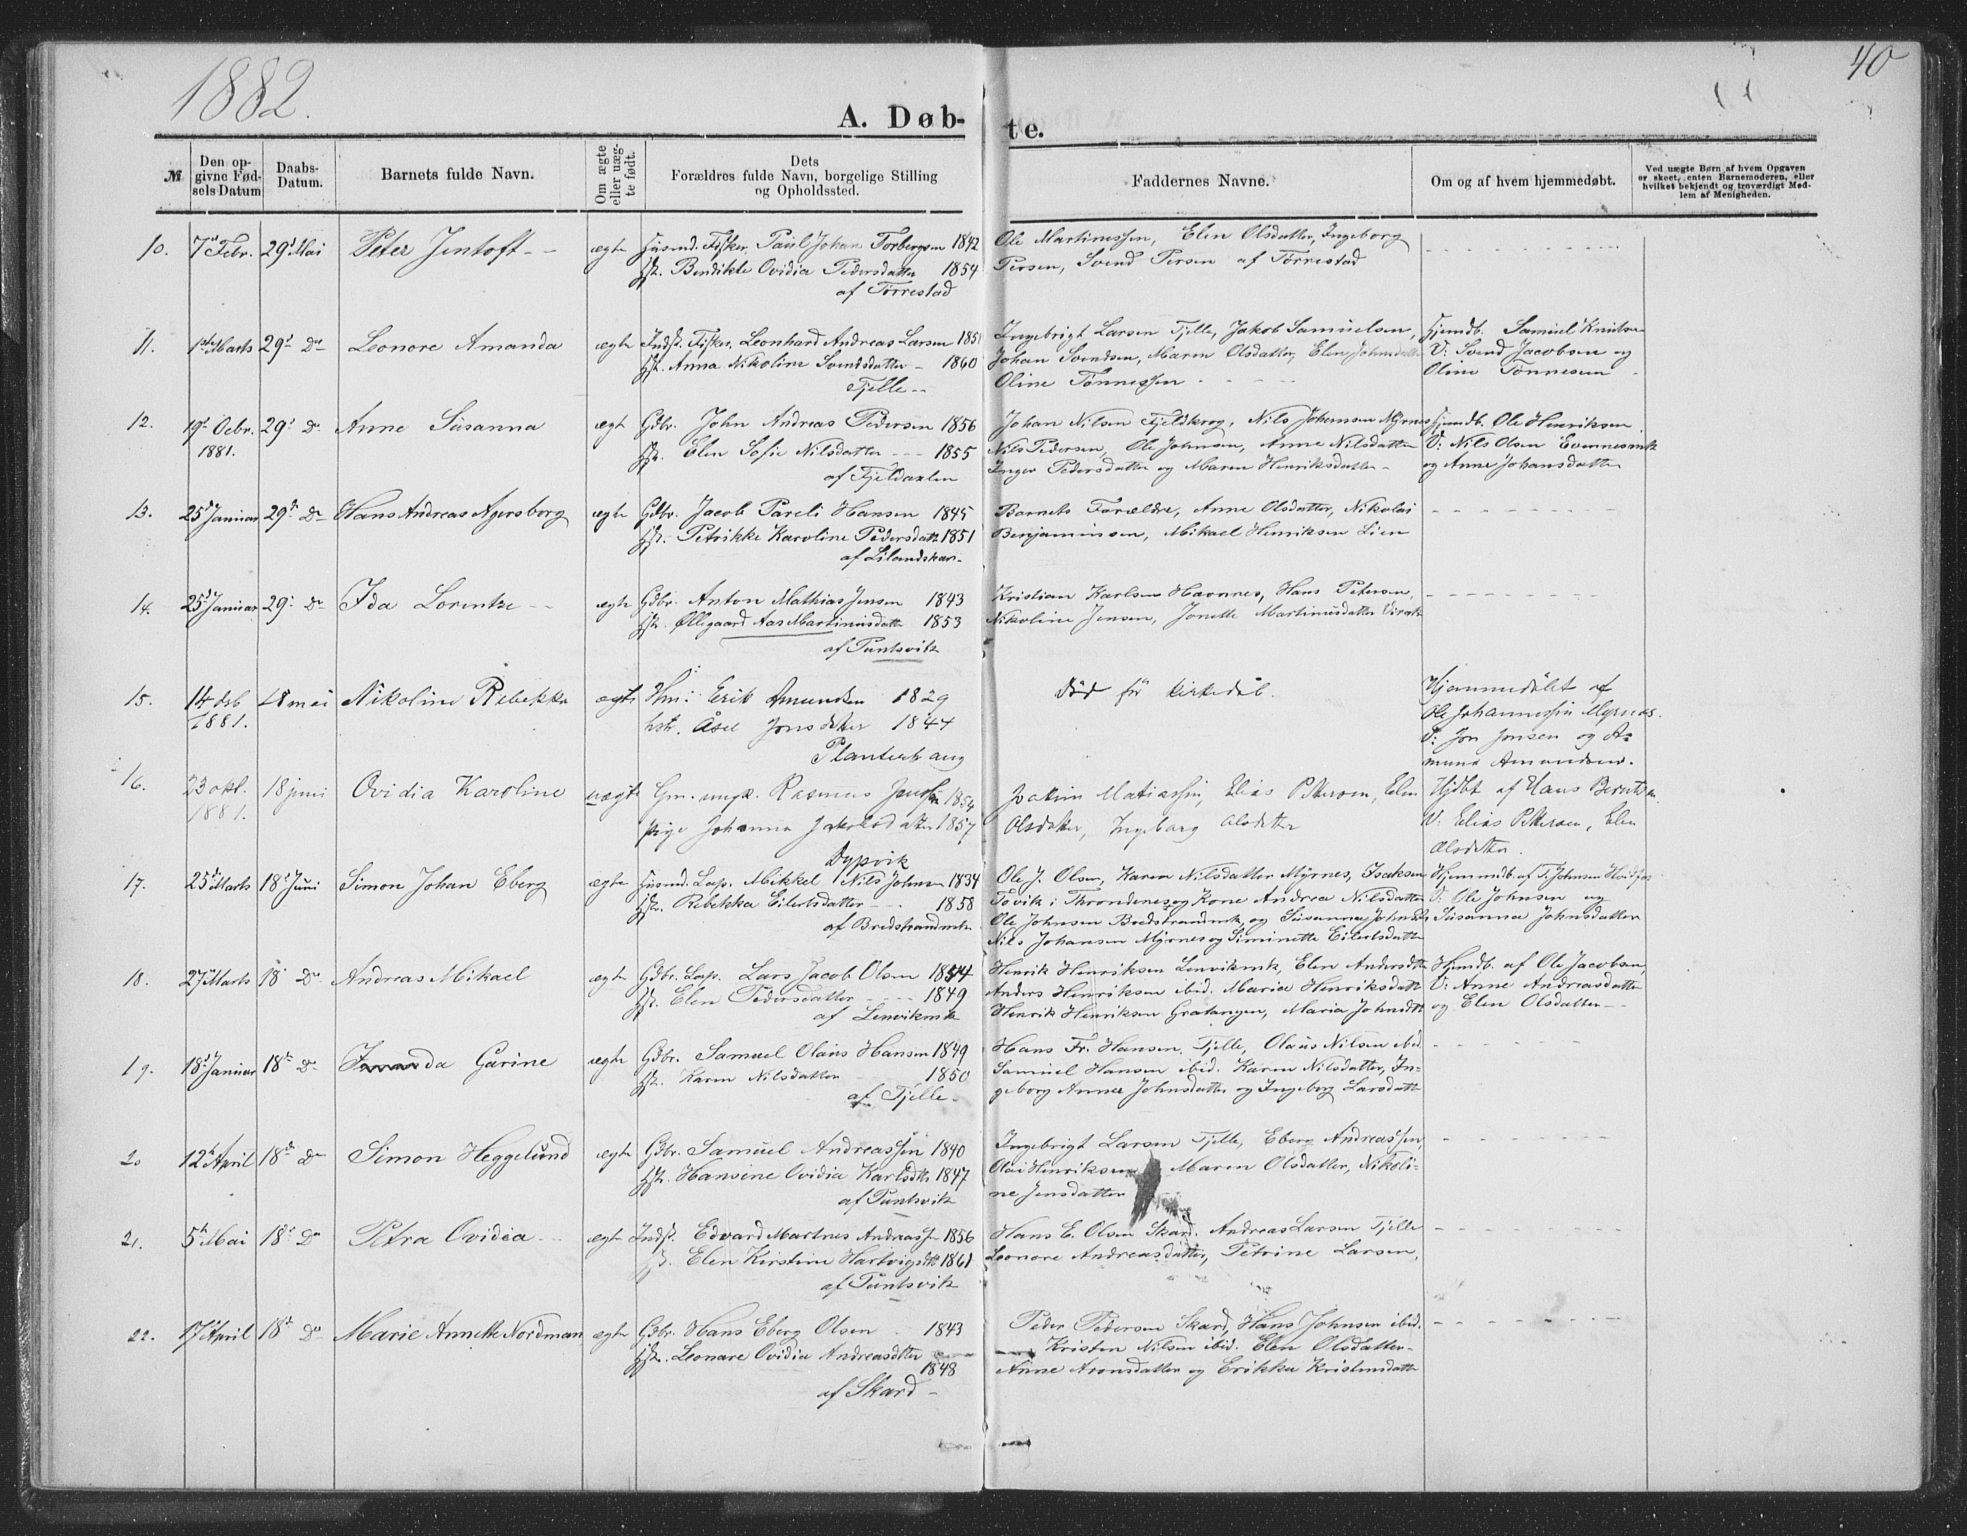 1882.
40
A. Døb-
te.
№
Den op-
givne Fød-
sels Datum
Daabs-
Datum.
Barnets fulde Navn.
Om ægte
eller uæg-
te født.
Dets
Forældres fulde Navn, borgelige Stilling
og Opholdssted.
Faddernes Navne.
Om og af hvem hjemmedøbt.
Ved uægte Børn af hvem Opgaven
er skeet, enten Barnemoderen, eller
hvilket bekjendt og troværdigt Med-
lem af Menigheden.
10. 7d Febr. 29d Mai Peter Jentoft ægte Husmd. Fisker Paul Johan Torbergsen 1842
Hst. Bendikte Ovidia Pedersdatter 1854
af Torrestad
Ole Martinussen, Elen Olsdatter, Ingeborg
Persen, Svend Persen af Torrestad
11. 1st Marts 29d Do Leonore Amanda ægte Indst. Fisker Leonhard Andreas Larsen 1851
Hst. Anna Nikoline Svendsdatter - 1860
Tjelle
Ingebrigt Larsen Tjelle, Jakob Samuelsen,
Johan Svendsen, Maren Olsdatter, Elen Johnsdatter
Oline Tønnessen
Hjemdb. Samuel Knutsen
V: Svend Jacobsen og
Oline Tønnesen
12. 19d Octbr. 29d Do Anne Susanna ægt Gdbr. John Andreas Pedersen 1856
1881. Hst. Elen Sofie Nilsdatter 1855
af Fjeldaxlen
Johan Nilsen Fjeldkrog, Nils Johansen Myrnes
Nils Pedersen, Ole Johnsen, Anne Nilsdatter
Inger Pedersdatter og Maren Henriksdatter
Hjemdb. Ole Henriksen
V: Nils Olsen Evenesmk
og Anne Johansdatter
13. 25d Januar 29d Do Hans Andreas Agersborg ægte Gdbr. Jacob Pareli Hansen 1845
Hst. Petrikke Karoline Pedersdatt 1851
af Lilandskar
Barnets Forældre, Anne Olsdatter, Nikolai
Benjaminsen, Mikael Henriksen Lien
14. 25d Januar 29d Do Ida Lorentze ægte Gdbr. Anton Mathias Jensen 1843
Hst. Øllegaard Aas Martinusdatter 1853
af Tuntsvik
Kristian Karlsen Havnnes, Hans Petersen,
Nikoline Jensen, Jonette Martinusdatter
15. 14 dsb 28 mai Nikoline Rebekka ægte Hm: Erik Amundsen 1829
1881. hst. Åsel Jonsdatter 1844
Planterhaug
død för kirkedåb.
Hjemmedøbt af
Ole Johannessen Myrnes.
V: Jon Jonsen og A-
mund Amundsen.
16. 23 okt. 18 juni Ovidia Karoline uægte Gm. ungk. Rasmus Jensen 1854
1881. pige Johanna Jakobsdatter 1857
Dypvik
Joakim Matiassen, Elias Pettersen, Elen
Olsdatter, Ingeborg Olsdatter
Hjdbt af Hans Berntsen.
V: Elias Pettersen, Elen
Olsdatter.
17. 25d Marts 18d Juni Simon Johan Eberg ægte Husmd. Lap. Mikkel Nils Johnsen 1834
Hst. Rebekka Eilertsdatter 1858
af Bredstrandmk
Ole J. Olsen, Karen Nilsdatter Myrnes, Isaksen
Tovik i Throndenes og Kone Andrea Nilsdatter
Ole Johnsen Bredstrandmk og Susanna Johnsdtr
Nils Johansen Myrnes og Siminette Eilertsdatter
Hjemmdb. af T. Johnsen
V: Ole Johnsen og
Susanna Johnsdatter
18. 27d Marts 18d Do Andreas Mikael ægte Gdbr. Lap. Lars Jacob Olsen 1854
Hst. Elen Pedersdatter 1849
af Lenvikmk
Henrik Henriksen Lenvikmk, Elen Andersdtr
Anders Henriksen ibid. Maria Henriksdatt
Henrik Henriksen Gratangen, Maria Johnsdtr
Hjemdb. af Ole Jacobsen,
V: Anne Andreasdatter
og Elen Olsdatter
19. 18d Januar 18d Do Garine ægte Gdbr. Samuel Olaus Hansen 1849
Hst. Karen Nilsdatter 1850
af Tjelle
Hans Fr. Hansen Tjelle, Olaus Nilsen ibid
Samuel Hansen ibid. Karen Nilsdatter, In-
geborg Annee Johnsdatter og Ingeborg Larsdatt
20 12d April 18d Do Simon Heggelund ægte Gdbr. Samuel Andreassen 1840
Hst. Hansine Ovidia Karlsdtr 1847
af Tuntsvik
Ingebrigt Larsen Tjelle, Eberg Andreassen,
Olai Henriksen Maren Olsdatter, Nikoli-
ne Jensdatter
21. 5d Mai 18d Do Petra Ovidia ægte Indst. Edvard Martnes Andreassen 1856
Hst. Elen Kirstine Hartvigsdtr 1861
af Tuntsvik
Hans E. Olsen Skard. Andreas Larsen Tjelle
Leonore Andreasdatter, Petrine Larsen,
22. 17d April 18d Do Marie Annette Nordman ægte Gdbr. Hans Eberg Olsen 1843
Hst. Leonare Ovidia Andreasdtter
1848
af Skard
Peder Pedersen Skard, Hans Johnsen ibid.
Kristen Nilsen ibid. Elen Olsdatter
Anne Aronsdatter og Erikka Kristensdatter